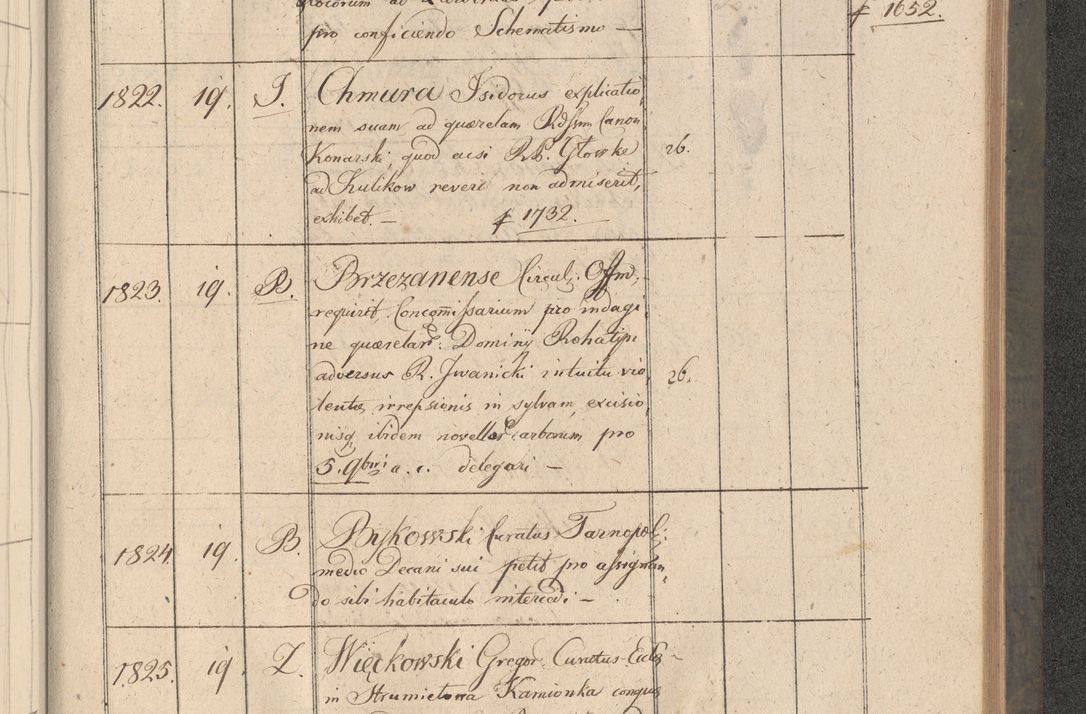 pro conficiendo Schematismo —
1652.
1822. 19. I. Chmura Isidorus explicatio,
nem suam ad quærelam Rdssmi Canon
Konarski, quod acsi RP. Głowka
ad Kulikow reverti non admiserit,
exhibet. — 1732.
26.
1823. 19. B. Brzezanense Circul: Offm,
requirit, Concommissarium pro indagi,
ne quærelar: Dominij Rohatyn
adversus R. Iwanicki intuitu vio,
lentæ irrepsionis in sylvam, excisio,
nisq ibidem novellar: arborum pro
5. 9bris a. c. delegari —
26.
1824. 19. B. Bykowski Curatus Tarnopol:
medio Decani sui petit pro assignan,
do sibi habitaculo intercedi —
1825. 19. Z. Więckowski Gregor. Curatus Eccles
in Strumietowa Kamionka